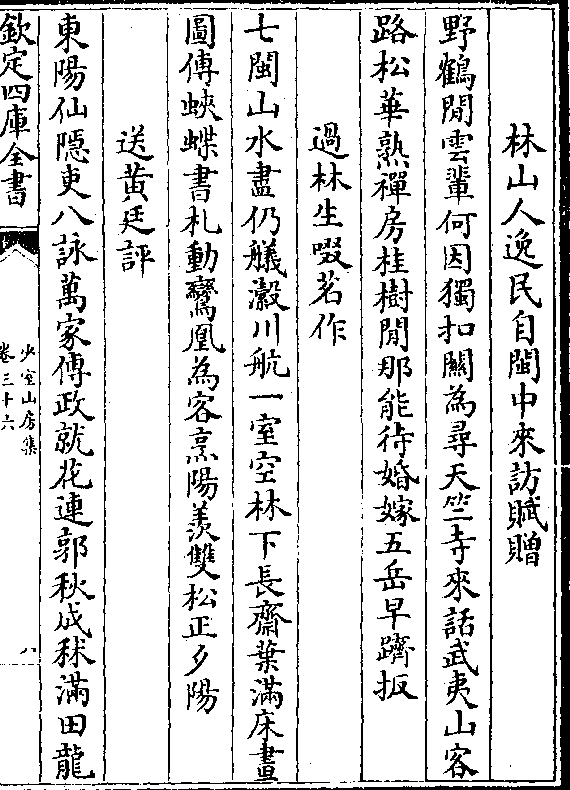 林山人逸民自閩中來訪賦贈
野鶴閒雲輩何因獨扣闗為尋天竺寺來話武夷山客
路松華熟禪房桂樹閒那能待婚嫁五岳早躋扳
過林生啜茗作
七閩山水盡仍艤瀫川航一室空林下長齋葉滿床畫
圖傳蛺蝶書札動鸞凰為客烹陽羨雙松正夕陽
送黄廷評
東陽仙隱吏八詠萬家傳政就花連郭秋成秫滿田龍
欽定四庫全書
少室山房集
卷三十六
八